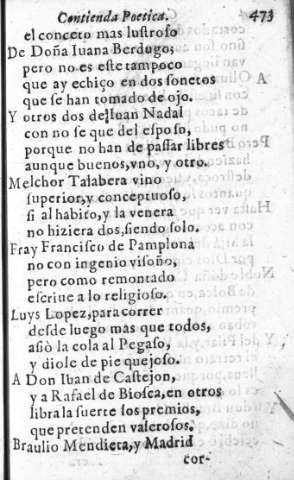 Contienda Poetica. 473
el conceto mas luſtroſo
De Doña Iuana Berdugo;
pero no es eſte tampoco
que ay echiço en dos ſonetos
que ſe han tomado de ojo.
Y otros dos de Iuan Nadal
con no ſe que del eſpoſo,
porque no han de paſſar libres
aunque buenos, vno, y otro.
Melchor Talabera vino
ſuperior, y conceptuoſo,
ſi al habito, y la venera
no hiziera dos, ſiendo ſolo.
Fray Franciſco de Pamplona
no con ingenio viſoño,
pero como remontado
eſcriue a lo religioſo.
Luys Lopez, para correr
desde luego mas que todos,
aſiò la cola al Pegaſo,
y diole de pie quejoſo.
A Don Iuan de Caſtejon,
y a Rafael de Bioſca, en otros
libra la ſuerte los premios,
que pretenden valeroſos.
Braulio Mendieta, y Madrid
cor-